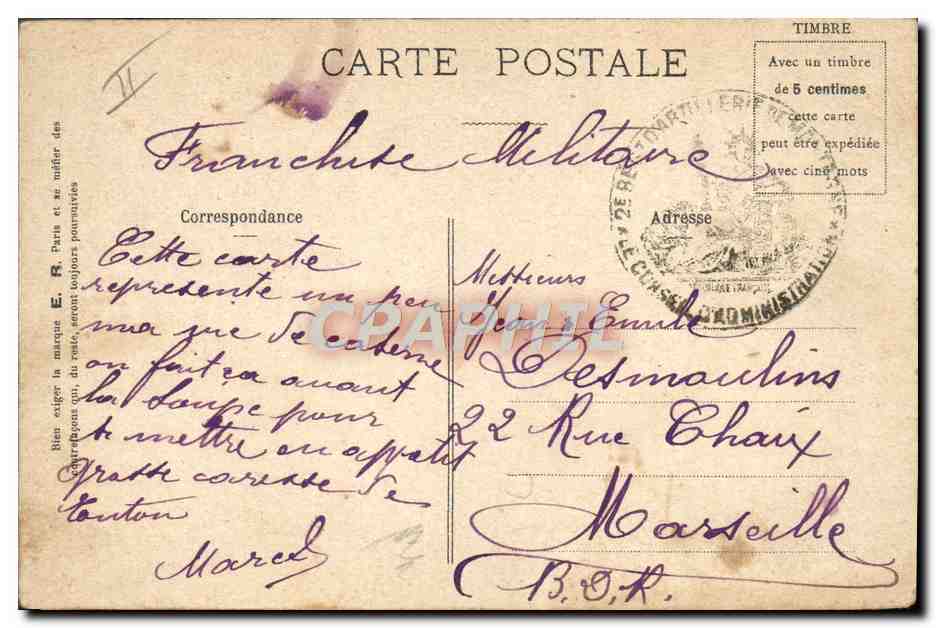 CARTE POSTALE
TIMBRE
Avec un timbre
de 5 centimes
cette carte
peut être expédiée
avec cinq mots
Franchise Militaire
Bien exiger la marque E. R. Paris et se méfier des
contrefaçons qui, du reste, seront toujours poursuivies
Correspondance
Adresse
2E REGT D'ARTILLERIE DE MONTAGNE
LE CONSEIL D'ADMINISTRATION
Cette carte
représente un peu
ma vie de caserne
on fait ça avant
la soupe pour
se mettre en appétit
grosse caresse de
tonton
Marcel
Messieurs
Jean & Emile
Desmoulins
22 Rue Chaix
Marseille
B.D.R.
CPAPHIL